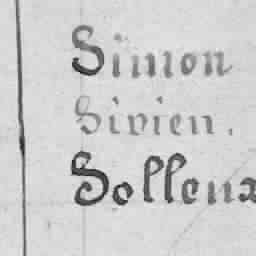 Simon
Sivien.
Solleux